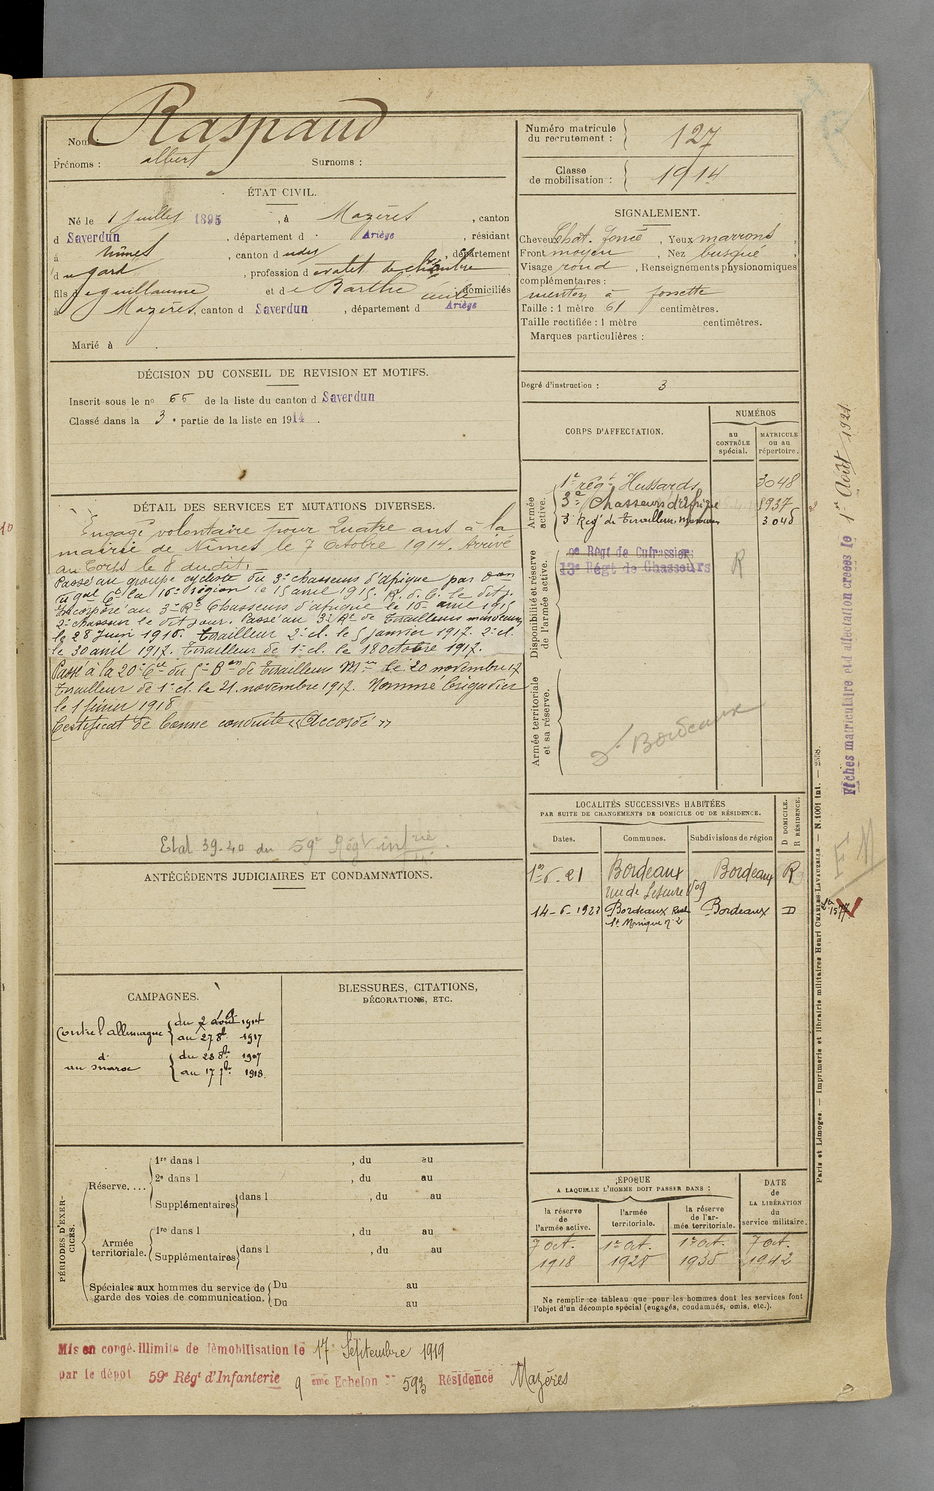 Nom Raspaud
Prénoms : albert Surnoms :
Numéro matricule du recrutement : 127
Classe de mobilisation : 1914
ÉTAT CIVIL.
Né le 1 Juillet 1895, à Mazères, canton
d Saverdun, département d Ariège, résidant
à Nîmes, canton d dudit, département
d u gard, profession d e valet de chambre
fils de guillaume et de Barthe Cécile, domiciliés
à Mazères, canton d Saverdun, département d Ariège
Marié à
SIGNALEMENT.
Cheveux Chat. foncé, Yeux marrons
Front moyen, Nez busqué,
Visage rond, Renseignements physionomiques
complémentaires :
menton à fossette
Taille : 1 mètre 61 centimètres.
Taille rectifiée : 1 mètre centimètres.
Marques particulières :
Degré d'instruction : 3
DÉCISION DU CONSEIL DE REVISION ET MOTIFS.
Inscrit sous le n° 66 de la liste du canton d Saverdun
Classé dans la 3e partie de la liste en 1914.
CORPS D'AFFECTATION.
NUMÉROS
au CONTRÔLE spécial.
MATRICULE ou au répertoire.
Armée active.
1er régt Hussards 3048
3e Chasseurs d'Afrique 1937
3e Reg' de tirailleurs marocains 3048
Disponibilité et réserve de l'armée active.
9e Régt de Cuirassiers
13e Régt de Chasseurs R
Armée territoriale et sa réserve.
Dt Bordeaux
DÉTAIL DES SERVICES ET MUTATIONS DIVERSES.
Engagé volontaire pour Quatre ans à la
mairie de Nîmes le 7 Octobre 1914. Arrivé
au Corps le 8 dudit.
Passé au groupe cycliste du 3e chasseurs d'afrique par
du gal Ct la 16e Région le 15 avril 1915. R. d. C. le dit j.
Incorporé au 3e Rt Chasseurs d'afrique le 16 avril 1915
2e chasseur le dit jour. Passé au 3e Rt de tirailleurs marocains
le 28 Juin 1916. tirailleur 2e cl. le 5 Janvier 1917. 2e cl.
le 30 avril 1917. tirailleur de 1e cl. le 18 Octobre 1917.
Passé à la 20e Cie du 5e Bon de tirailleurs Mains le 20 novembre 17
tirailleur de 1e cl. le 21 novembre 1917. Nommé brigadier
le 1 février 1918
Certificat de bonne conduite "Accordé"
Etat 39-40 du 59e Régt infrie
LOCALITÉS SUCCESSIVES HABITÉES
PAR SUITE DE CHANGEMENTS DE DOMICILE OU DE RÉSIDENCE.
Dates. Communes. Subdivisions de région D DOMICILE. R RÉSIDENCE.
1er-6-21 Bordeaux Bordeaux R
rue de Leseure 109
14-6-1923 Bordeaux Rue Bordeaux D
Ste Monique n° 2
ANTÉCÉDENTS JUDICIAIRES ET CONDAMNATIONS.
CAMPAGNES.
Contre l'allemagne du 2 Août 1914
au 27 8bre 1917
d° au maroc du 28 8bre 1907
au 17 7bre 1918.
BLESSURES, CITATIONS,
DÉCORATIONS, ETC.
PÉRIODES D'EXERCICES.
Réserve....
1re dans l , du au
2e dans l , du au
Supplémentaires dans l , du au
Armée territoriale.
1re dans l , du au
Supplémentaires dans l , du au
Spéciales aux hommes du service de garde des voies de communication.
Du au
Du au
ÉPOQUE
A LAQUELLE L'HOMME DOIT PASSER DANS :
la réserve de l'armée active.
l'armée territoriale.
la réserve de l'armée territoriale.
DATE de LA LIBÉRATION du service militaire.
7 Oct. 1er Oct. 1er Oct. 7 Oct.
1918 1928 1935 1942
Ne remplir ce tableau que pour les hommes dont les services font
l'objet d'un décompte spécial (engagés, condamnés, omis, etc.).
Mis en congé illimité de démobilisation le 17 Septembre 1919
par le dépôt 59e Régt d'Infanterie 9 ème Echelon N° 593 Résidence Mazères
Fiches matriculaire et d'affectation créées le 1er Août 1921.
Paris et Limoges. — Imprimerie et librairie militaires Henri CHARLES-LAVAUZELLE. — N. 1001 int. — 2538.
FM